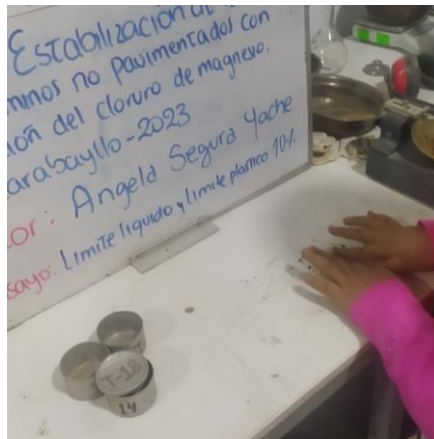 Estabilización de
minos no pavimentados con
ión del cloruro de magnesio,
arabayllo-2023
or: Angela Segura Yache
sayo: Limite liquido y limite plastico 10%
T-18
14